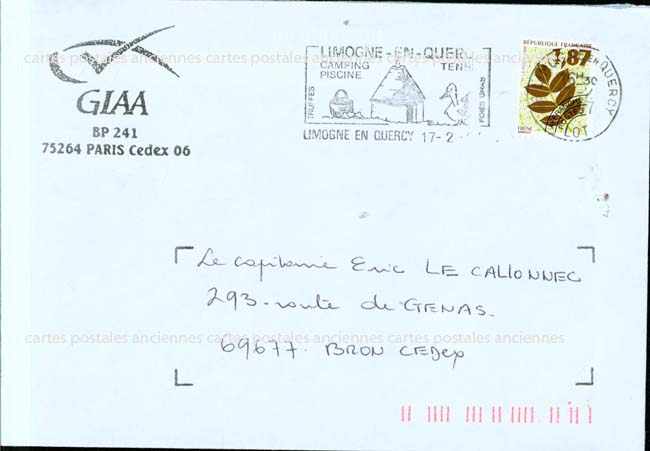 cartes postales anciennes cartes postales anciennes cartes postales anciennes
GIAA
BP 241
75264 PARIS Cedex 06
LIMOGNE-EN-QUERCY
CAMPING
PISCINE
TENNIS
TRUFFES
FOIES GRAS
LIMOGNE EN QUERCY 17-2
RÉPUBLIQUE FRANÇAISE
1,87
FRÊNE
QUERCY
LOT
Le capitaine Eric LE CALLONNEC
293-route de GENAS.
cartes postales anciennes cartes postales anciennes cartes postales anciennes
69677. BRON CEDEX